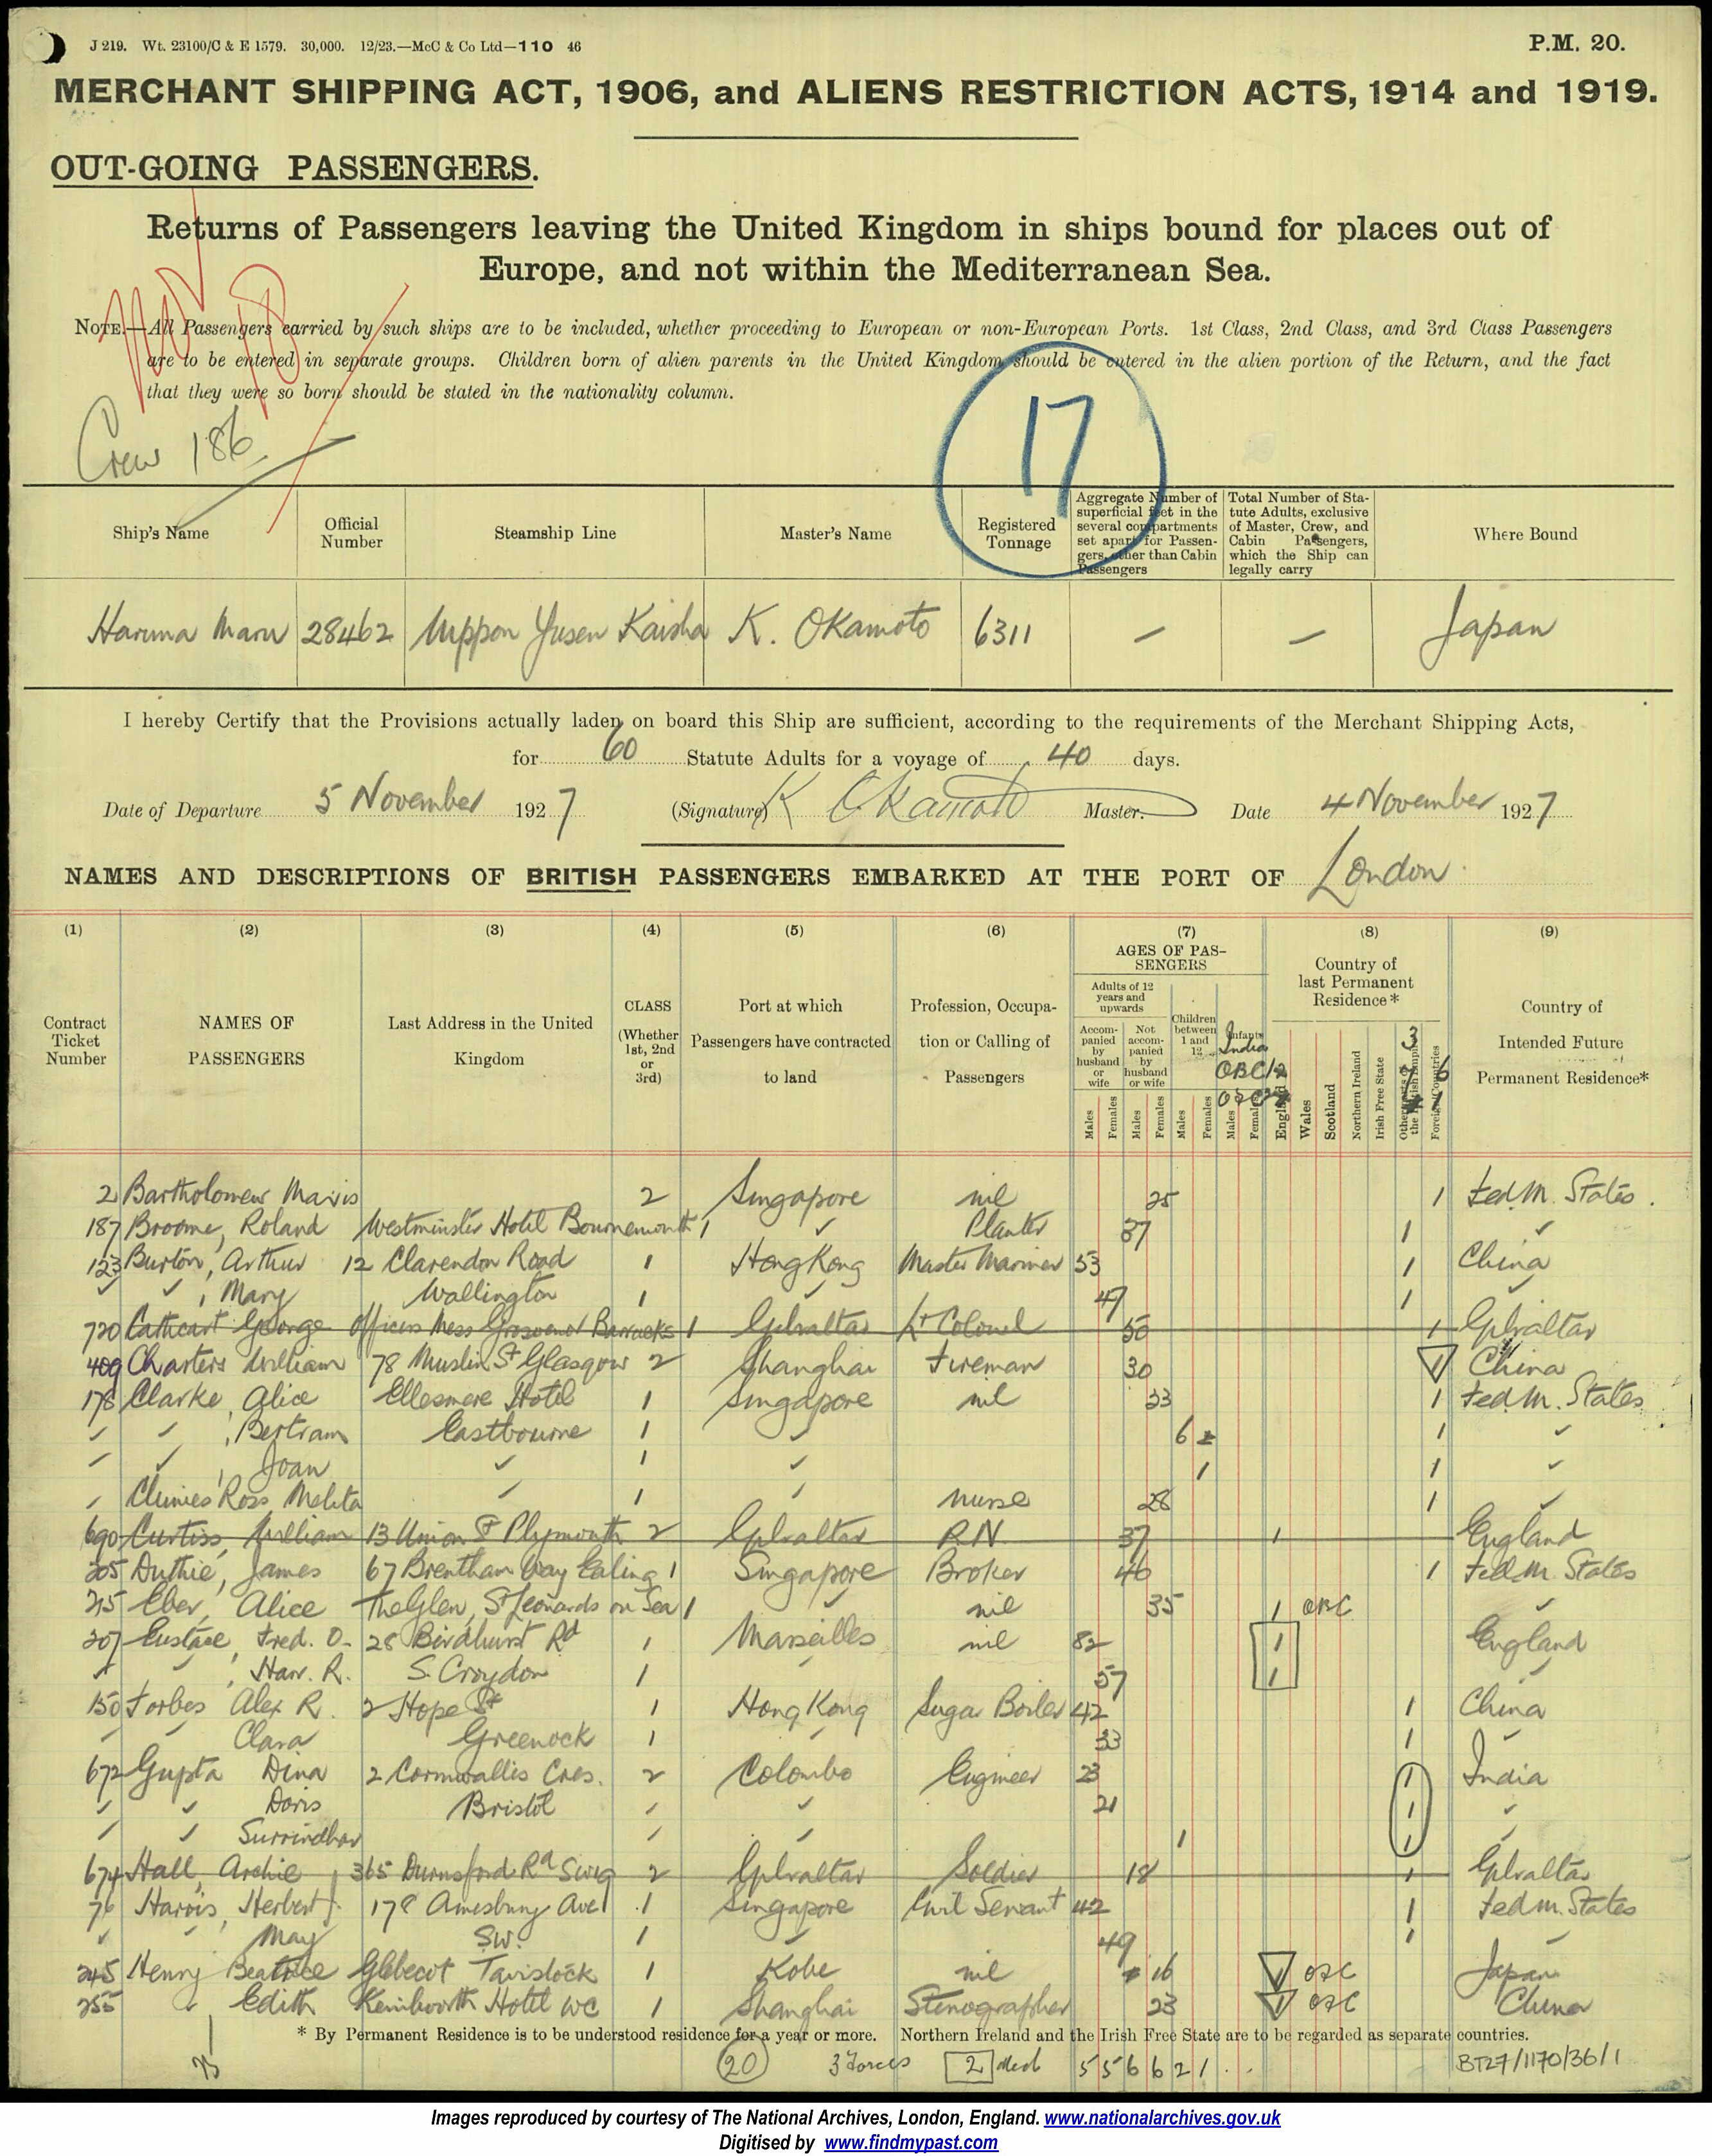 J 219. Wt. 23100/C & E 1579. 30,000. 12/23.—McC & Co Ltd—110 46
P.M. 20.
MERCHANT SHIPPING ACT, 1906, and ALIENS RESTRICTION ACTS, 1914 and 1919.
OUT-GOING PASSENGERS.
Returns of Passengers leaving the United Kingdom in ships bound for places out of
Europe, and not within the Mediterranean Sea.
NOTE.—All Passengers carried by such ships are to be included, whether proceeding to European or non-European Ports. 1st Class, 2nd Class, and 3rd Class Passengers
are to be entered in separate groups. Children born of alien parents in the United Kingdom should be entered in the alien portion of the Return, and the fact
that they were so born should be stated in the nationality column.
17
Crew 186
Ship's Name Official Number Steamship Line Master's Name Registered Tonnage Aggregate Number of superficial feet in the several compartments set apart for Passengers, other than Cabin Passengers Total Number of Statute Adults, exclusive of Master, Crew, and Cabin Passengers, which the Ship can legally carry Where Bound
Haruna Maru 28462 Nippon Yusen Kaisha K. Okamoto 6311 — — Japan
I hereby Certify that the Provisions actually laden on board this Ship are sufficient, according to the requirements of the Merchant Shipping Acts,
for 60 Statute Adults for a voyage of 40 days.
Date of Departure 5 November 1927 (Signature) K Okamoto Master. Date 4 November 1927
NAMES AND DESCRIPTIONS OF BRITISH PASSENGERS EMBARKED AT THE PORT OF London
(1) (2) (3) (4) (5) (6) (7) (8) (9)
Contract Ticket Number
NAMES OF PASSENGERS
Last Address in the United Kingdom
CLASS (Whether 1st, 2nd or 3rd)
Port at which Passengers have contracted to land
Profession, Occupation or Calling of Passengers
AGES OF PASSENGERS
Adults of 12 years and upwards
Accompanied by husband or wife
Not accompanied by husband or wife
Children between 1 and 12
Infants
Males Females Males Females Males Females Males Females
India
OBC 12
Country of last Permanent Residence*
England Wales Scotland Northern Ireland Irish Free State Other parts of the British Empire Foreign Countries
Country of Intended Future Permanent Residence*
2 Bartholomew Mavis 2 Singapore nil 25 1 Fed. M. States.
187 Broome, Roland Westminster Hotel Bournemouth 1 ✓ Planter 37 1 ✓
123 Burton, Arthur 12 Clarendon Road 1 Hong Kong Master Mariner 53 1 China
✓ ✓, Mary Wallington 1 ✓ 47 1 ✓
720 Cathcart George Officers Mess Grosvenor Barracks 1 Gibraltar Lt Colonel 50 1 Gibraltar
409 Charters William 78 Muslin St Glasgow 2 Shanghai Fireman 30 1 China
178 Clarke, Alice Ellesmere Hotel 1 Singapore nil 33 1 Fed. M. States
✓ ✓, Bertram Eastbourne 1 ✓ 6 1 ✓
✓ ✓, Joan ✓ 1 ✓ 1 1 ✓
✓ Clunies Ross, Melita ✓ 1 ✓ nurse 28 1 ✓
690 Curtiss, William 13 Union St Plymouth 2 Gibraltar R.N. 37 1 England
205 Duthie, James 67 Brentham Way Ealing 1 Singapore Broker 46 1 Fed. M. States
215 Eber, Alice The Glen, St Leonards on Sea 1 ✓ nil 35 1 OBC ✓
207 Eustace, Fred. O. 28 Birdhurst Rd 1 Marseilles nil 82 1 England
✓ ✓, Harr. R. S. Croydon 1 ✓ 57 1 ✓
150 Forbes Alex R. 2 Hope St 1 Hong Kong Sugar Boiler 42 1 China
✓ ✓ Clara Greenock 1 ✓ 33 1 ✓
672 Gupta Dina 2 Cornwallis Cres. 2 Colombo Engineer 23 1 India
✓ ✓ Doris Bristol ✓ ✓ 21 1 ✓
✓ ✓ Surrindhar ✓ ✓ 1 1 ✓
674 Hall, Archie 365 Durnsford Rd SW19 2 Gibraltar Soldier 18 1 Gibraltar
76 Harris, Herbert J. 178 Amesbury Ave 1 Singapore Civil Servant 42 1 Fed. M. States
✓ ✓ May S.W. 1 ✓ 49 1 ✓
245 Henry Beatrice Glebecot Tavistock 1 Kobe nil 16 1 Japan
255 ✓ Edith Kenilworth Hotel WC 1 Shanghai Stenographer 23 1 China
* By Permanent Residence is to be understood residence for a year or more. Northern Ireland and the Irish Free State are to be regarded as separate countries.
25 20 3 Forces 2 Med 5 5 6 6 2 1 . .
BT27/1170/36/1
Images reproduced by courtesy of The National Archives, London, England. www.nationalarchives.gov.uk
Digitised by www.findmypast.com